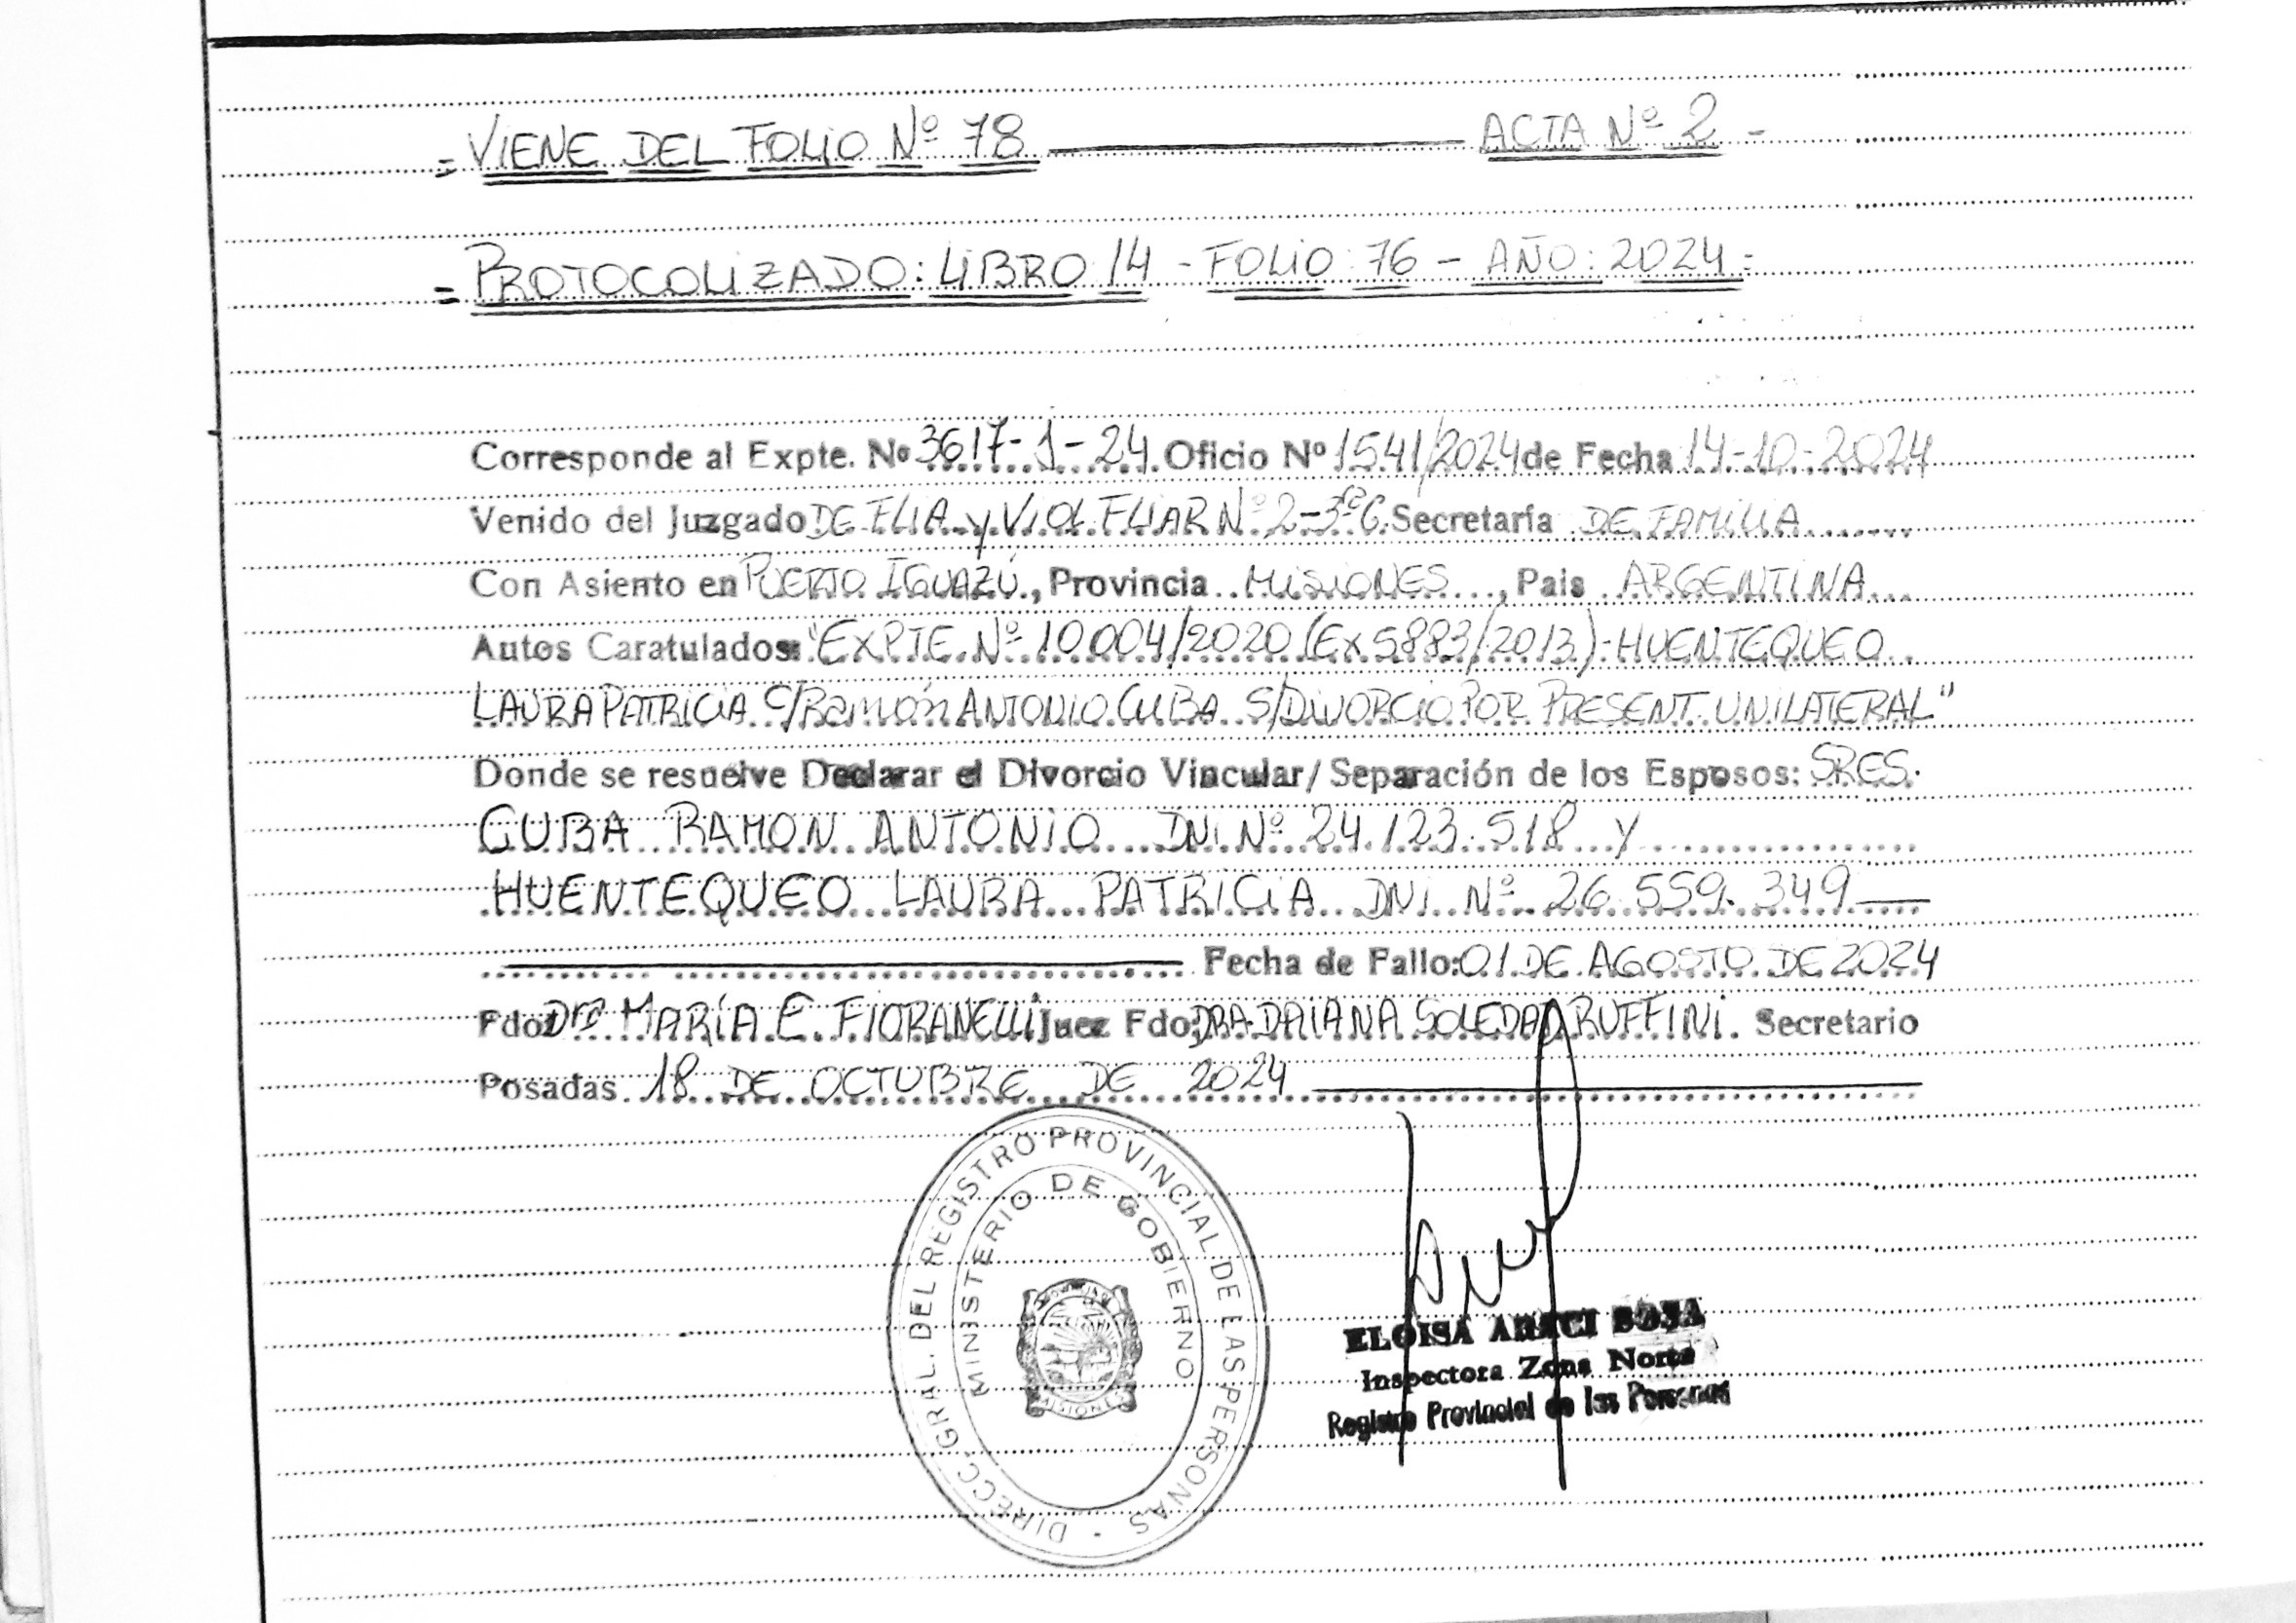 = VIENE DEL FOLIO Nº 78 ——— ACTA Nº 2 -
= PROTOCOLIZADO: LIBRO 14 - FOLIO: 76 - AÑO: 2024 =
Corresponde al Expte. Nº 3617-1-24. Oficio Nº 1541/2024 de Fecha 14-10-2024
Venido del Juzgado DE FLIA y VIOL FLIAR Nº 2-3ª C. Secretaría DE FAMILIA
Con Asiento en PUERTO IGUAZÚ, Provincia MISIONES, Pais ARGENTINA
Autos Caratulados: "EXPTE. Nº 10004/2020 (Ex 5883/2013)-HUENTEQUEO
LAURA PATRICIA C/Ramón ANTONIO CUBA S/DIVORCIO POR PRESENT. UNILATERAL"
Donde se resuelve Declarar el Divorcio Vincular/Separación de los Esposos: SRES.
CUBA RAMON ANTONIO DNI Nº 24.123.518 y
HUENTEQUEO LAURA PATRICIA DNI Nº 26.559.349 —
Fecha de Fallo: 01 DE AGOSTO DE 2024
Fdo: Drª MARÍA E. FIORANELLI Juez Fdo: DRA DAIANA SOLEDAD RUFFINI. Secretario
Posadas 18 DE OCTUBRE DE 2024
DIRECC. GRAL. DEL REGISTRO PROVINCIAL DE LAS PERSONAS
MINISTERIO DE GOBIERNO
MISIONES
ELOISA ARACI
Inspectora Zona Norte
Registro Provincial de las Personas